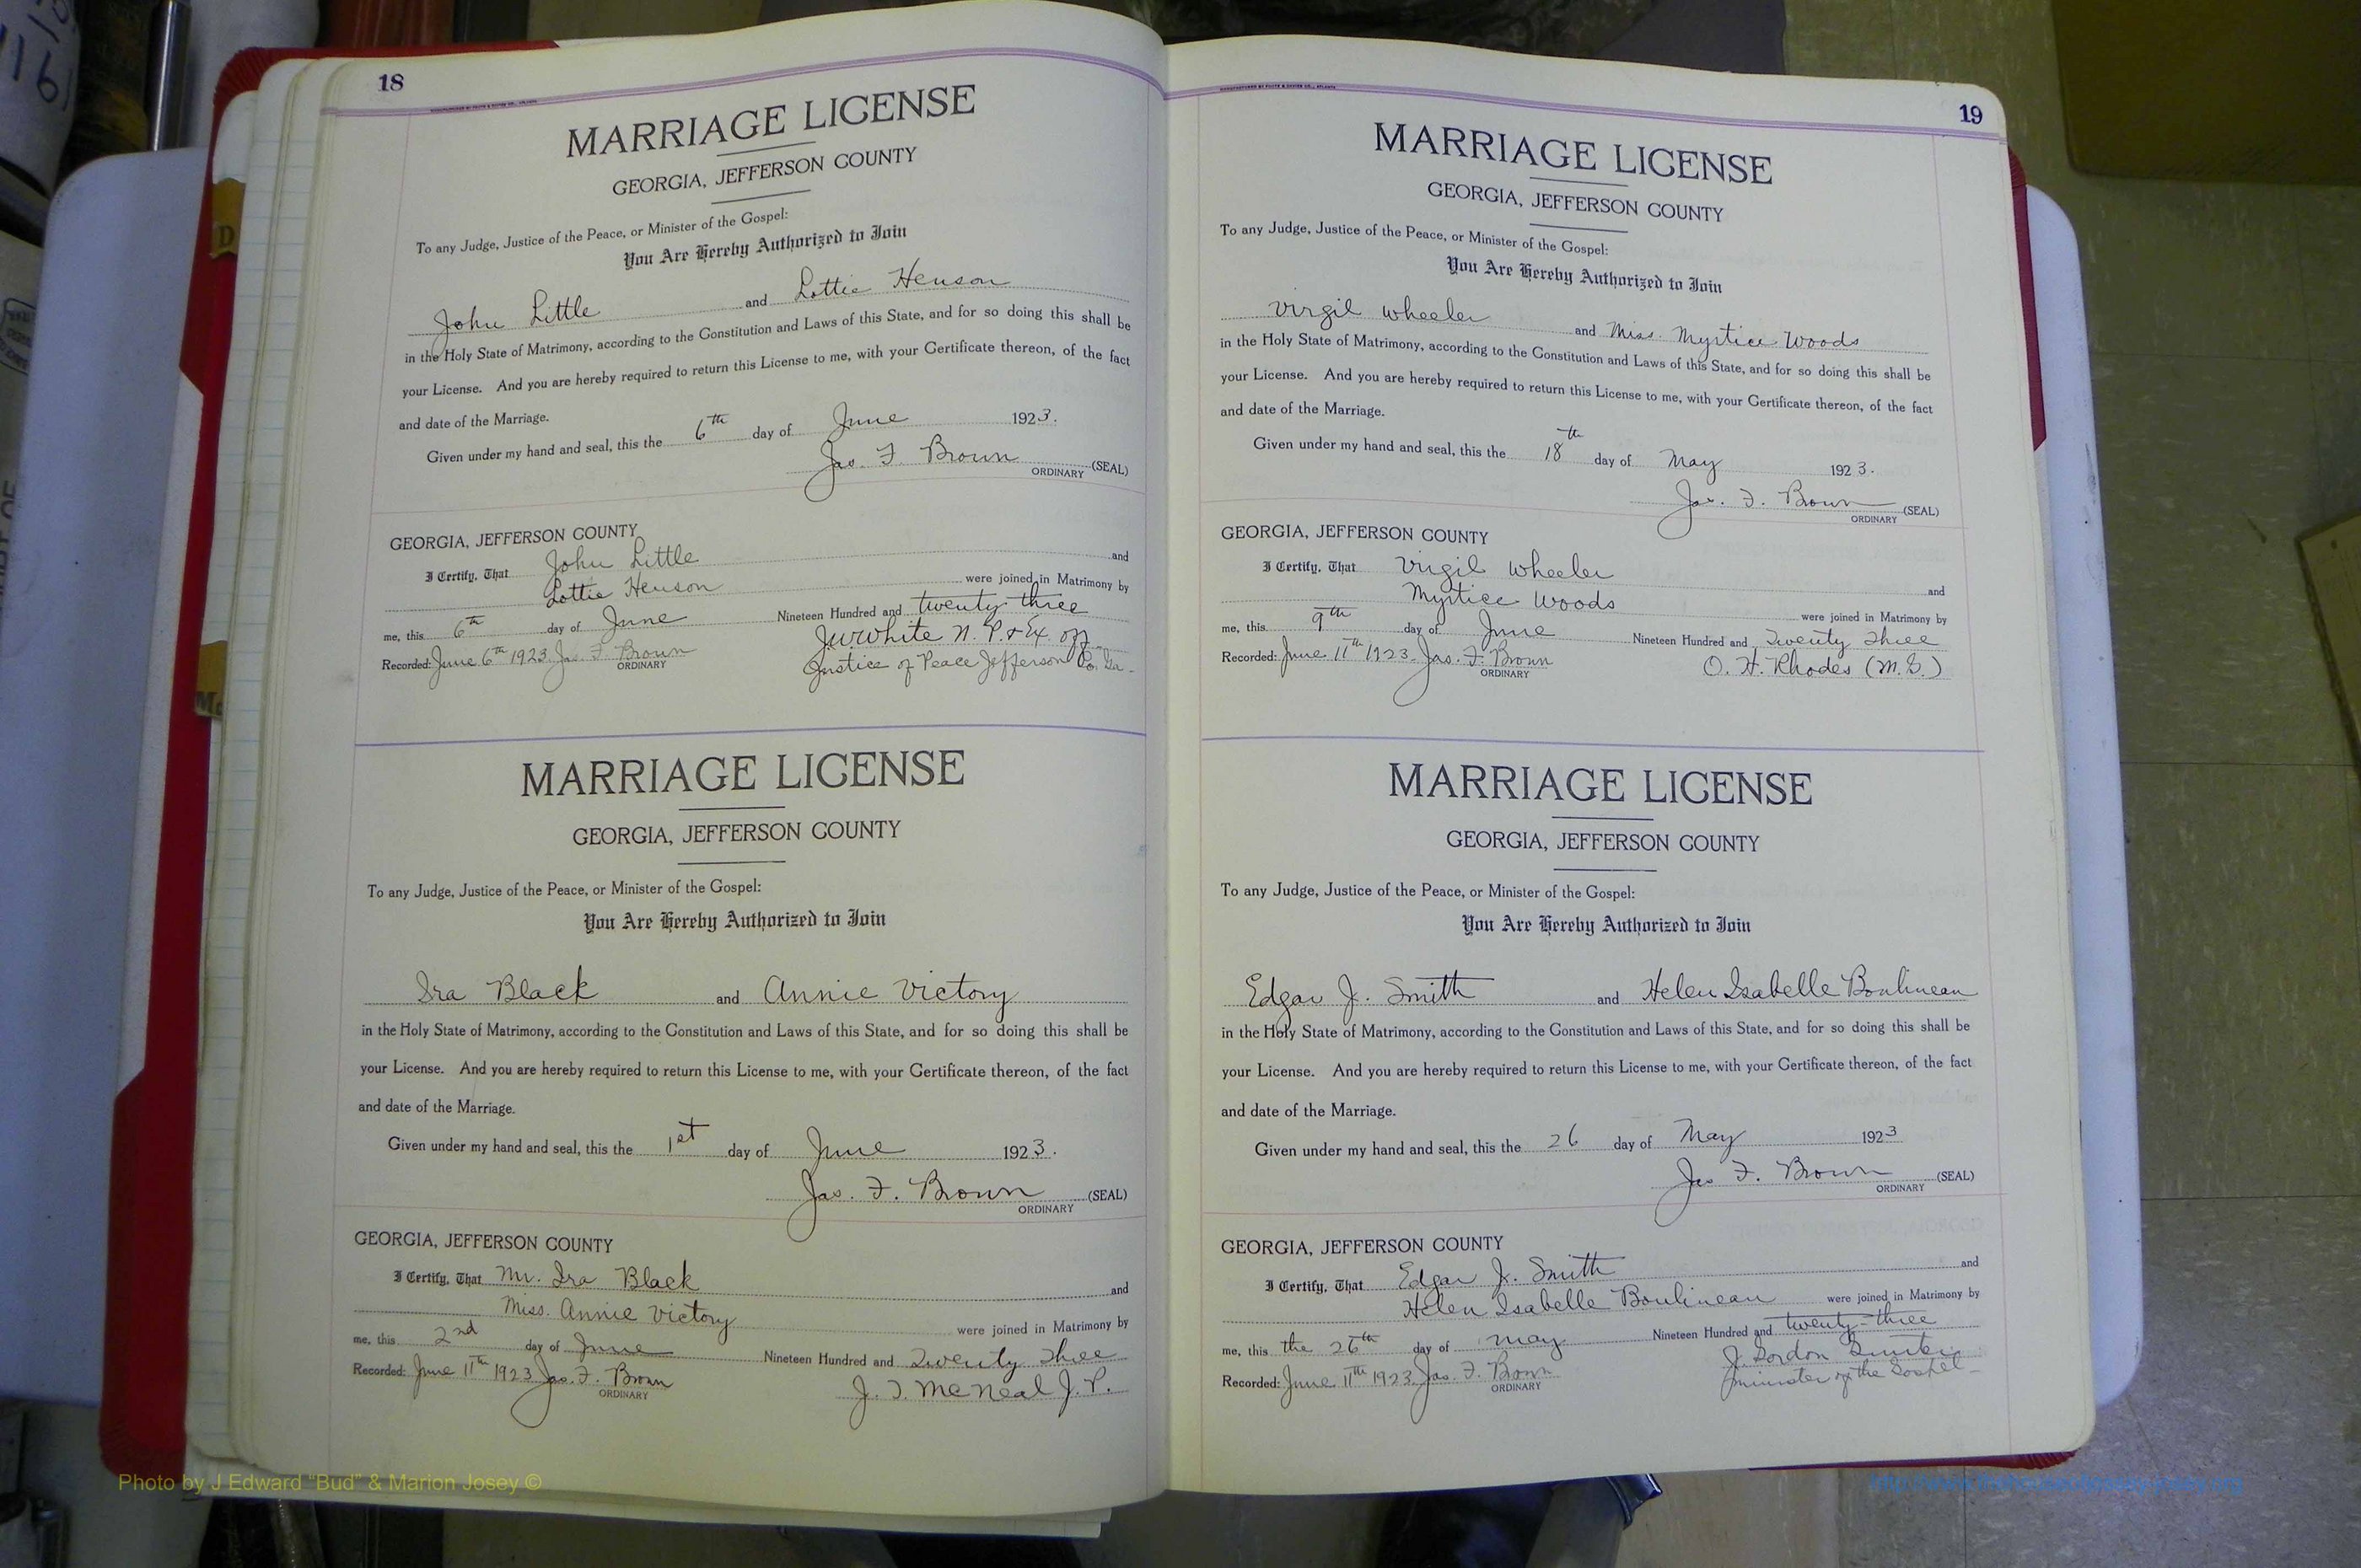 18
MARRIAGE LICENSE
GEORGIA, JEFFERSON COUNTY
To any Judge, Justice of the Peace, or Minister of the Gospel:
You Are Hereby Authorized to Join
John Little and Lottie Henson
in the Holy State of Matrimony, according to the Constitution and Laws of this State, and for so doing this shall be
your License. And you are hereby required to return this License to me, with your Certificate thereon, of the fact
and date of the Marriage.
Given under my hand and seal, this the 6th day of June 1923.
Jas. F. Brown (SEAL)
ORDINARY
GEORGIA, JEFFERSON COUNTY
I Certify, That John Little and
Lottie Henson were joined in Matrimony by
me, this 6th day of June Nineteen Hundred and twenty three
Recorded: June 6th 1923 Jas. F. Brown J W White N. P. & Ex. off
ORDINARY Justice of Peace Jefferson Co. Ga.
MARRIAGE LICENSE
GEORGIA, JEFFERSON COUNTY
To any Judge, Justice of the Peace, or Minister of the Gospel:
You Are Hereby Authorized to Join
Ira Black and Annie Victory
in the Holy State of Matrimony, according to the Constitution and Laws of this State, and for so doing this shall be
your License. And you are hereby required to return this License to me, with your Certificate thereon, of the fact
and date of the Marriage.
Given under my hand and seal, this the 1st day of June 1923.
Jas. F. Brown (SEAL)
ORDINARY
GEORGIA, JEFFERSON COUNTY
I Certify, That Mr. Ira Black and
Miss. Annie Victory were joined in Matrimony by
me, this 2nd day of June Nineteen Hundred and Twenty Three
Recorded: June 11th 1923 Jas. F. Brown J. T. McNeal J. P.
ORDINARY
19
MARRIAGE LICENSE
GEORGIA, JEFFERSON COUNTY
To any Judge, Justice of the Peace, or Minister of the Gospel:
You Are Hereby Authorized to Join
Virgil Wheeler and Miss. Myrtice Woods
in the Holy State of Matrimony, according to the Constitution and Laws of this State, and for so doing this shall be
your License. And you are hereby required to return this License to me, with your Certificate thereon, of the fact
and date of the Marriage.
Given under my hand and seal, this the 18th day of May 1923.
Jas. F. Brown (SEAL)
ORDINARY
GEORGIA, JEFFERSON COUNTY
I Certify, That Virgil Wheeler and
Myrtice Woods were joined in Matrimony by
me, this 9th day of June Nineteen Hundred and Twenty Three
Recorded: June 11th 1923. Jas. F. Brown O. H. Rhodes (M.G.)
ORDINARY
MARRIAGE LICENSE
GEORGIA, JEFFERSON COUNTY
To any Judge, Justice of the Peace, or Minister of the Gospel:
You Are Hereby Authorized to Join
Edgar J. Smith and Helen Isabelle Boulineau
in the Holy State of Matrimony, according to the Constitution and Laws of this State, and for so doing this shall be
your License. And you are hereby required to return this License to me, with your Certificate thereon, of the fact
and date of the Marriage.
Given under my hand and seal, this the 26 day of May 1923
Jas F. Brown (SEAL)
ORDINARY
GEORGIA, JEFFERSON COUNTY
I Certify, That Edgar J. Smith and
Helen Isabelle Boulineau were joined in Matrimony by
me, this the 26th day of May Nineteen Hundred and twenty-three
Recorded: June 11th 1923. Jas. F. Brown J. Gordon
ORDINARY minister of the Gospel
Photo by J Edward "Bud" & Marion Josey ©